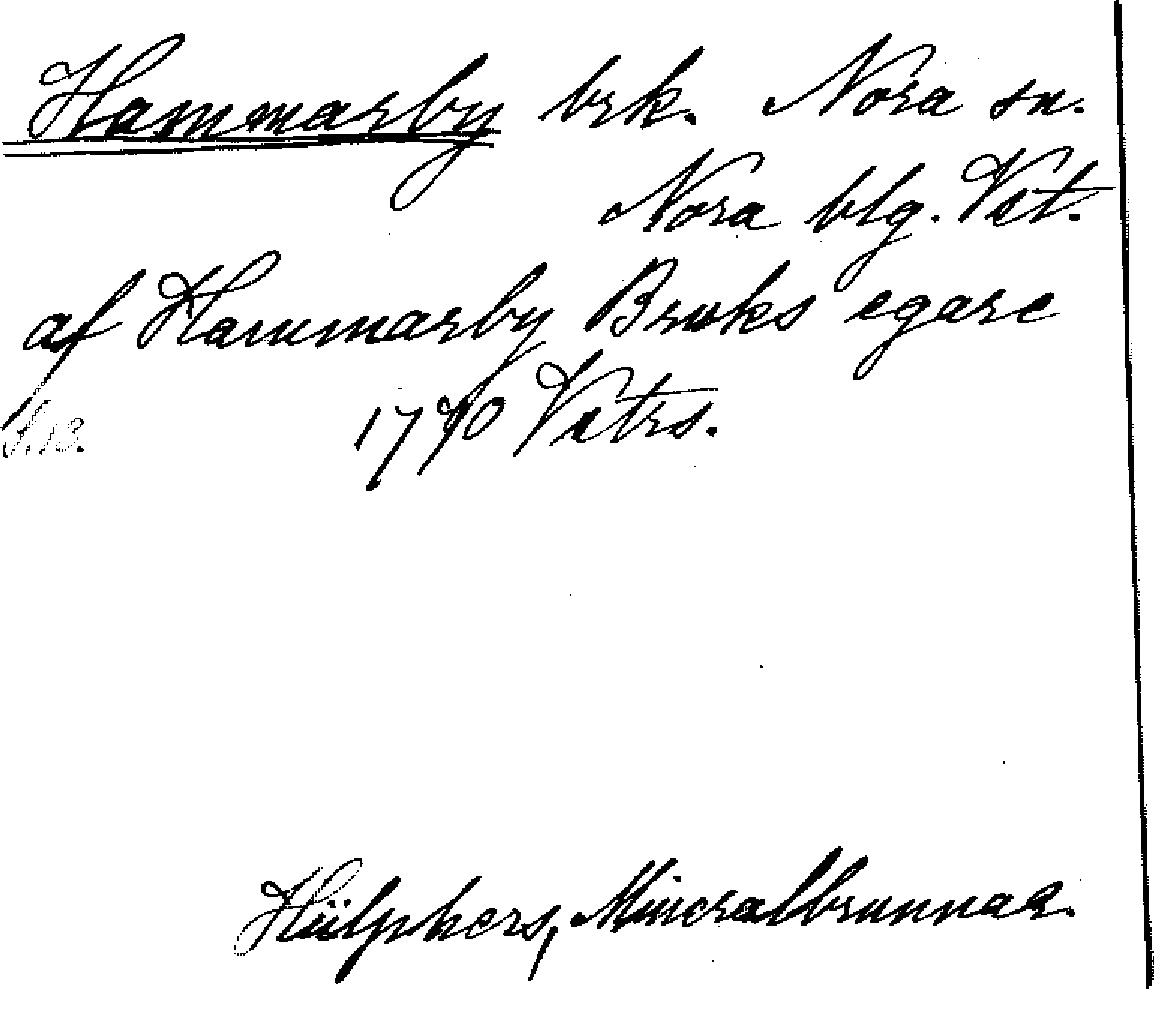 Hammarby brk. Nora sn.
Nora blg. Vst.
af Hammarby Bruks egare
1770 Vstrs.
Hülphers, Mineralbrunnar.